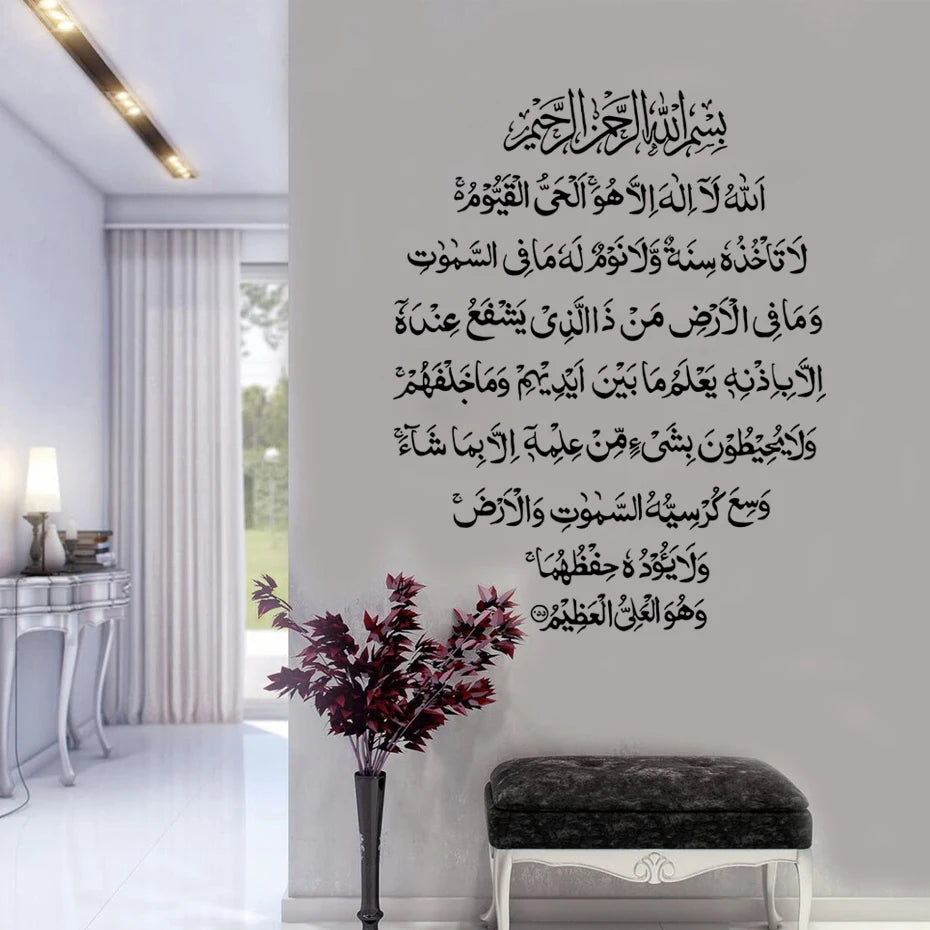 بِسْمِ اللهِ الرَّحْمٰنِ الرَّحِيْمِ
اَللهُ لَآ اِلٰهَ اِلَّا هُوَ ۚ اَلْحَيُّ الْقَيُّوْمُ ۚ
لَا تَاْخُذُهٗ سِنَةٌ وَّلَا نَوْمٌ لَهٗ مَا فِي السَّمٰوٰتِ
وَمَا فِي الْاَرْضِ مَنْ ذَا الَّذِيْ يَشْفَعُ عِنْدَهٗٓ
اِلَّا بِاِذْنِهٖ يَعْلَمُ مَا بَيْنَ اَيْدِيْهِمْ وَمَا خَلْفَهُمْ ۚ
وَلَا يُحِيْطُوْنَ بِشَيْءٍ مِّنْ عِلْمِهٖٓ اِلَّا بِمَا شَآءَ ۚ
وَسِعَ كُرْسِيُّهُ السَّمٰوٰتِ وَالْاَرْضَ ۚ
وَلَا يَـُٔوْدُهٗ حِفْظُهُمَا ۚ
وَهُوَ الْعَلِيُّ الْعَظِيْمُ